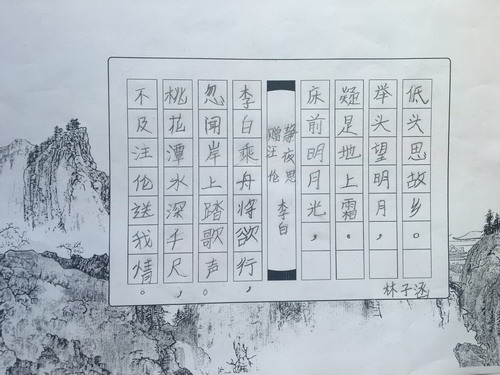 静夜思 李白
床前明月光，
疑是地上霜。
举头望明月，
低头思故乡。
赠汪伦
李白乘舟将欲行，
忽闻岸上踏歌声。
桃花潭水深千尺，
不及汪伦送我情。
林子涵